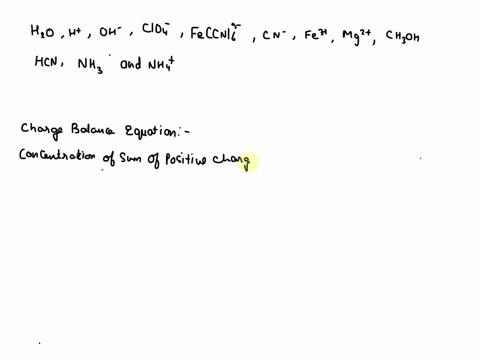 H2O , H+ , OH- , ClO4- , Fe(CN)6 3- , CN- , Fe3+ , Mg2+ , CH3OH
HCN, NH3 and NH4+
Charge Balance Equation:-
Concentration of Sum of Positive charg